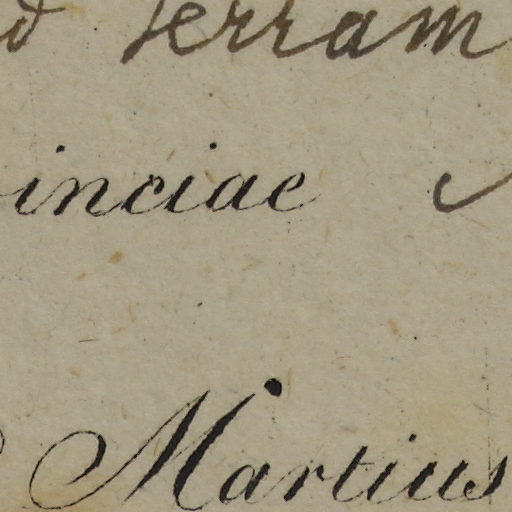 d terram
inciae
Martius